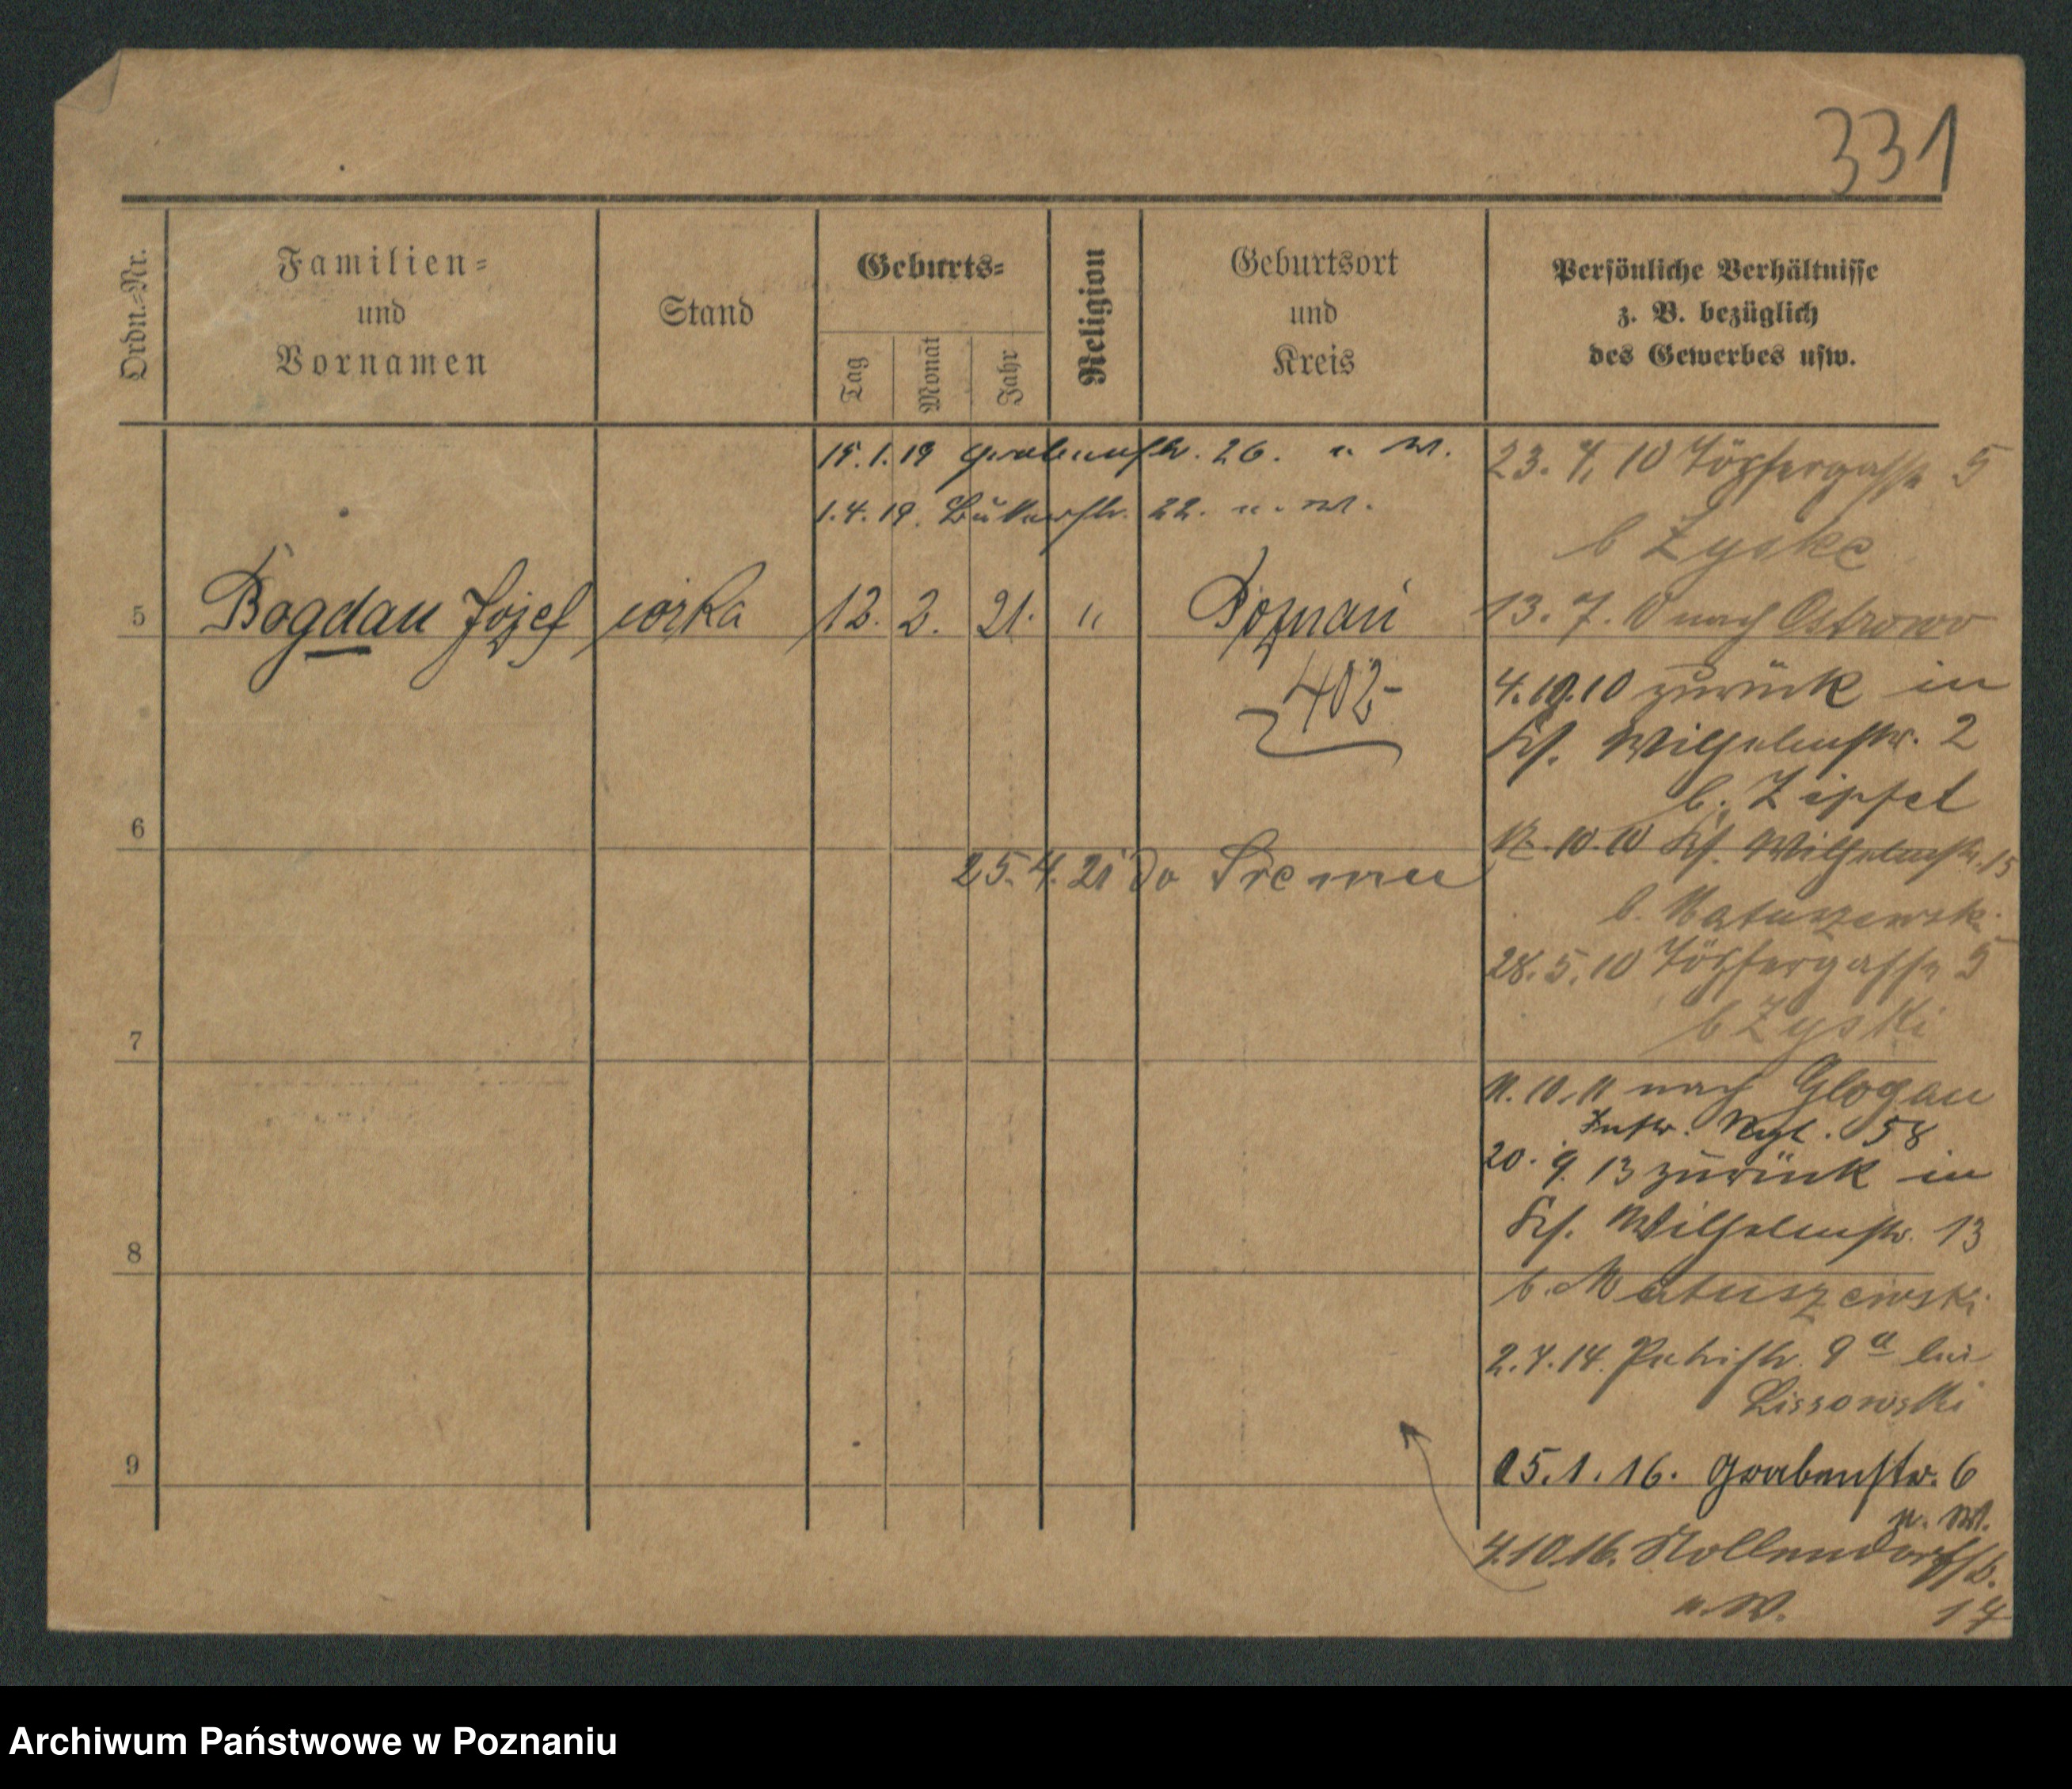 331
Ordn.-Nr.
Familien-
und
Vornamen
Stand
Geburts-
Tag
Monat
Jahr
Religion
Geburtsort
und
Kreis
Persönliche Verhältnisse
z. B. bezüglich
des Gewerbes usw.
15.1.19 Grabenstr. 26. u. W.
1.4.19. Bukerstr. 22. u. W.
5 Bogdan Józef córka 12. 2. 21. " Poznań
402-
6
25.4.21 do Śremu
7
8
9
23. 4. 10 Töpfergasse 5
b Zyske
13. 7. 10 nach Ostrowo
4.10.10 zurück in
Schf. Wilhelmstr. 2
b. Zipfel
10.10 Schf. Wilhelmstr. 15
b. Matuszewski
28.5.10 Töpfergasse 5
b Zyski
11.10.11 nach Glogau
Inftr. Rgt. 58
20. 9. 13 zurück in
Schf. Wilhelmstr. 13
b. Matuszewski
2.4.14. Petristr. 9a bei
Lissowski
15.1.16. Grabenstr. 6
u. W.
4.10.16. Nollendorfstr.
u. W. 14
Archiwum Państwowe w Poznaniu